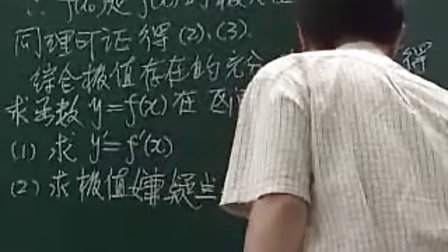 ∴ f(x₀)是f(x)的极大值
同理可证得(2),(3).
综合极值存在的充分 得
求函数 y=f(x)在 区间
(1) 求 y′=f′(x)
(2) 求极值嫌疑点